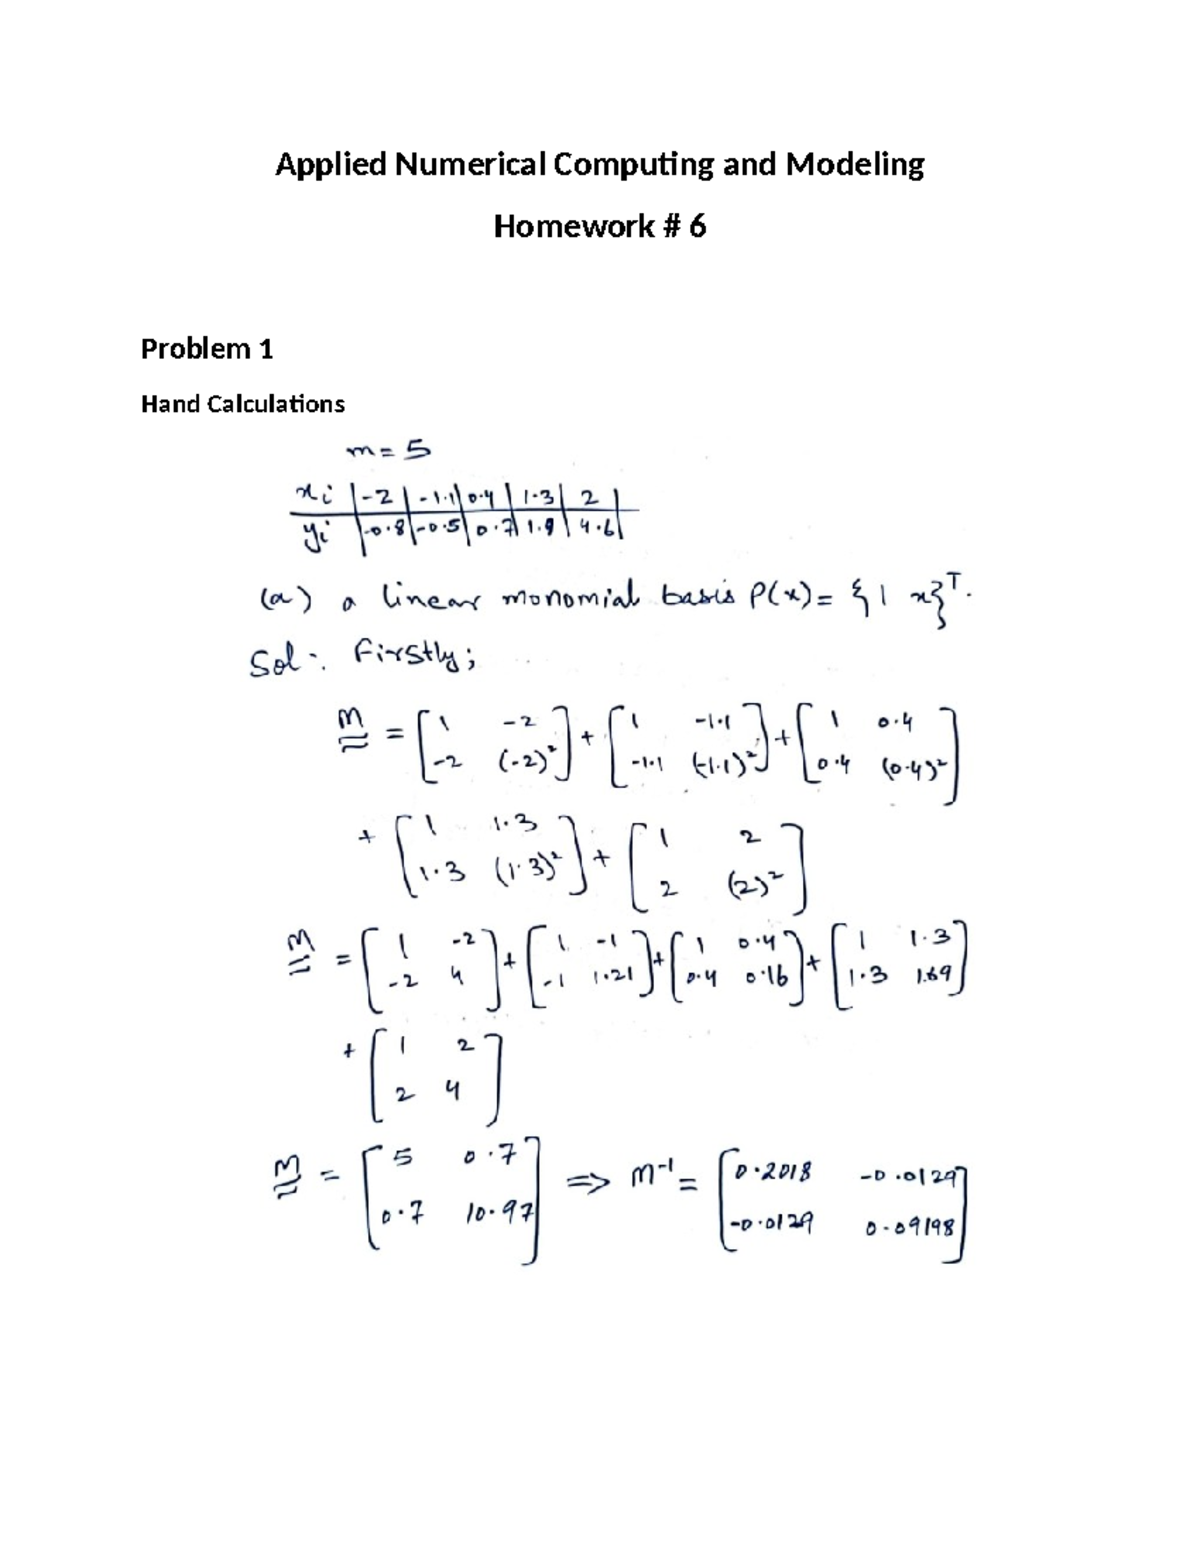 Applied Numerical Computing and Modeling
Homework # 6
Problem 1
Hand Calculations
m = 5
xi | -2 | -1.1 | 0.4 | 1.3 | 2 |
yi | -0.8 | -0.5 | 0.7 | 1.9 | 4.6 |
(a) a linear monomial basis P(x) = {1 x}ᵀ.
Sol:. Firstly;
M = [1 -2; -2 (-2)²] + [1 -1.1; -1.1 (-1.1)²] + [1 0.4; 0.4 (0.4)²]
+ [1 1.3; 1.3 (1.3)²] + [1 2; 2 (2)²]
M = [1 -2; -2 4] + [1 -1; -1 1.21] + [1 0.4; 0.4 0.16] + [1 1.3; 1.3 1.69]
+ [1 2; 2 4]
M = [5 0.7; 0.7 10.97] => M⁻¹ = [0.2018 -0.0129; -0.0129 0.09198]